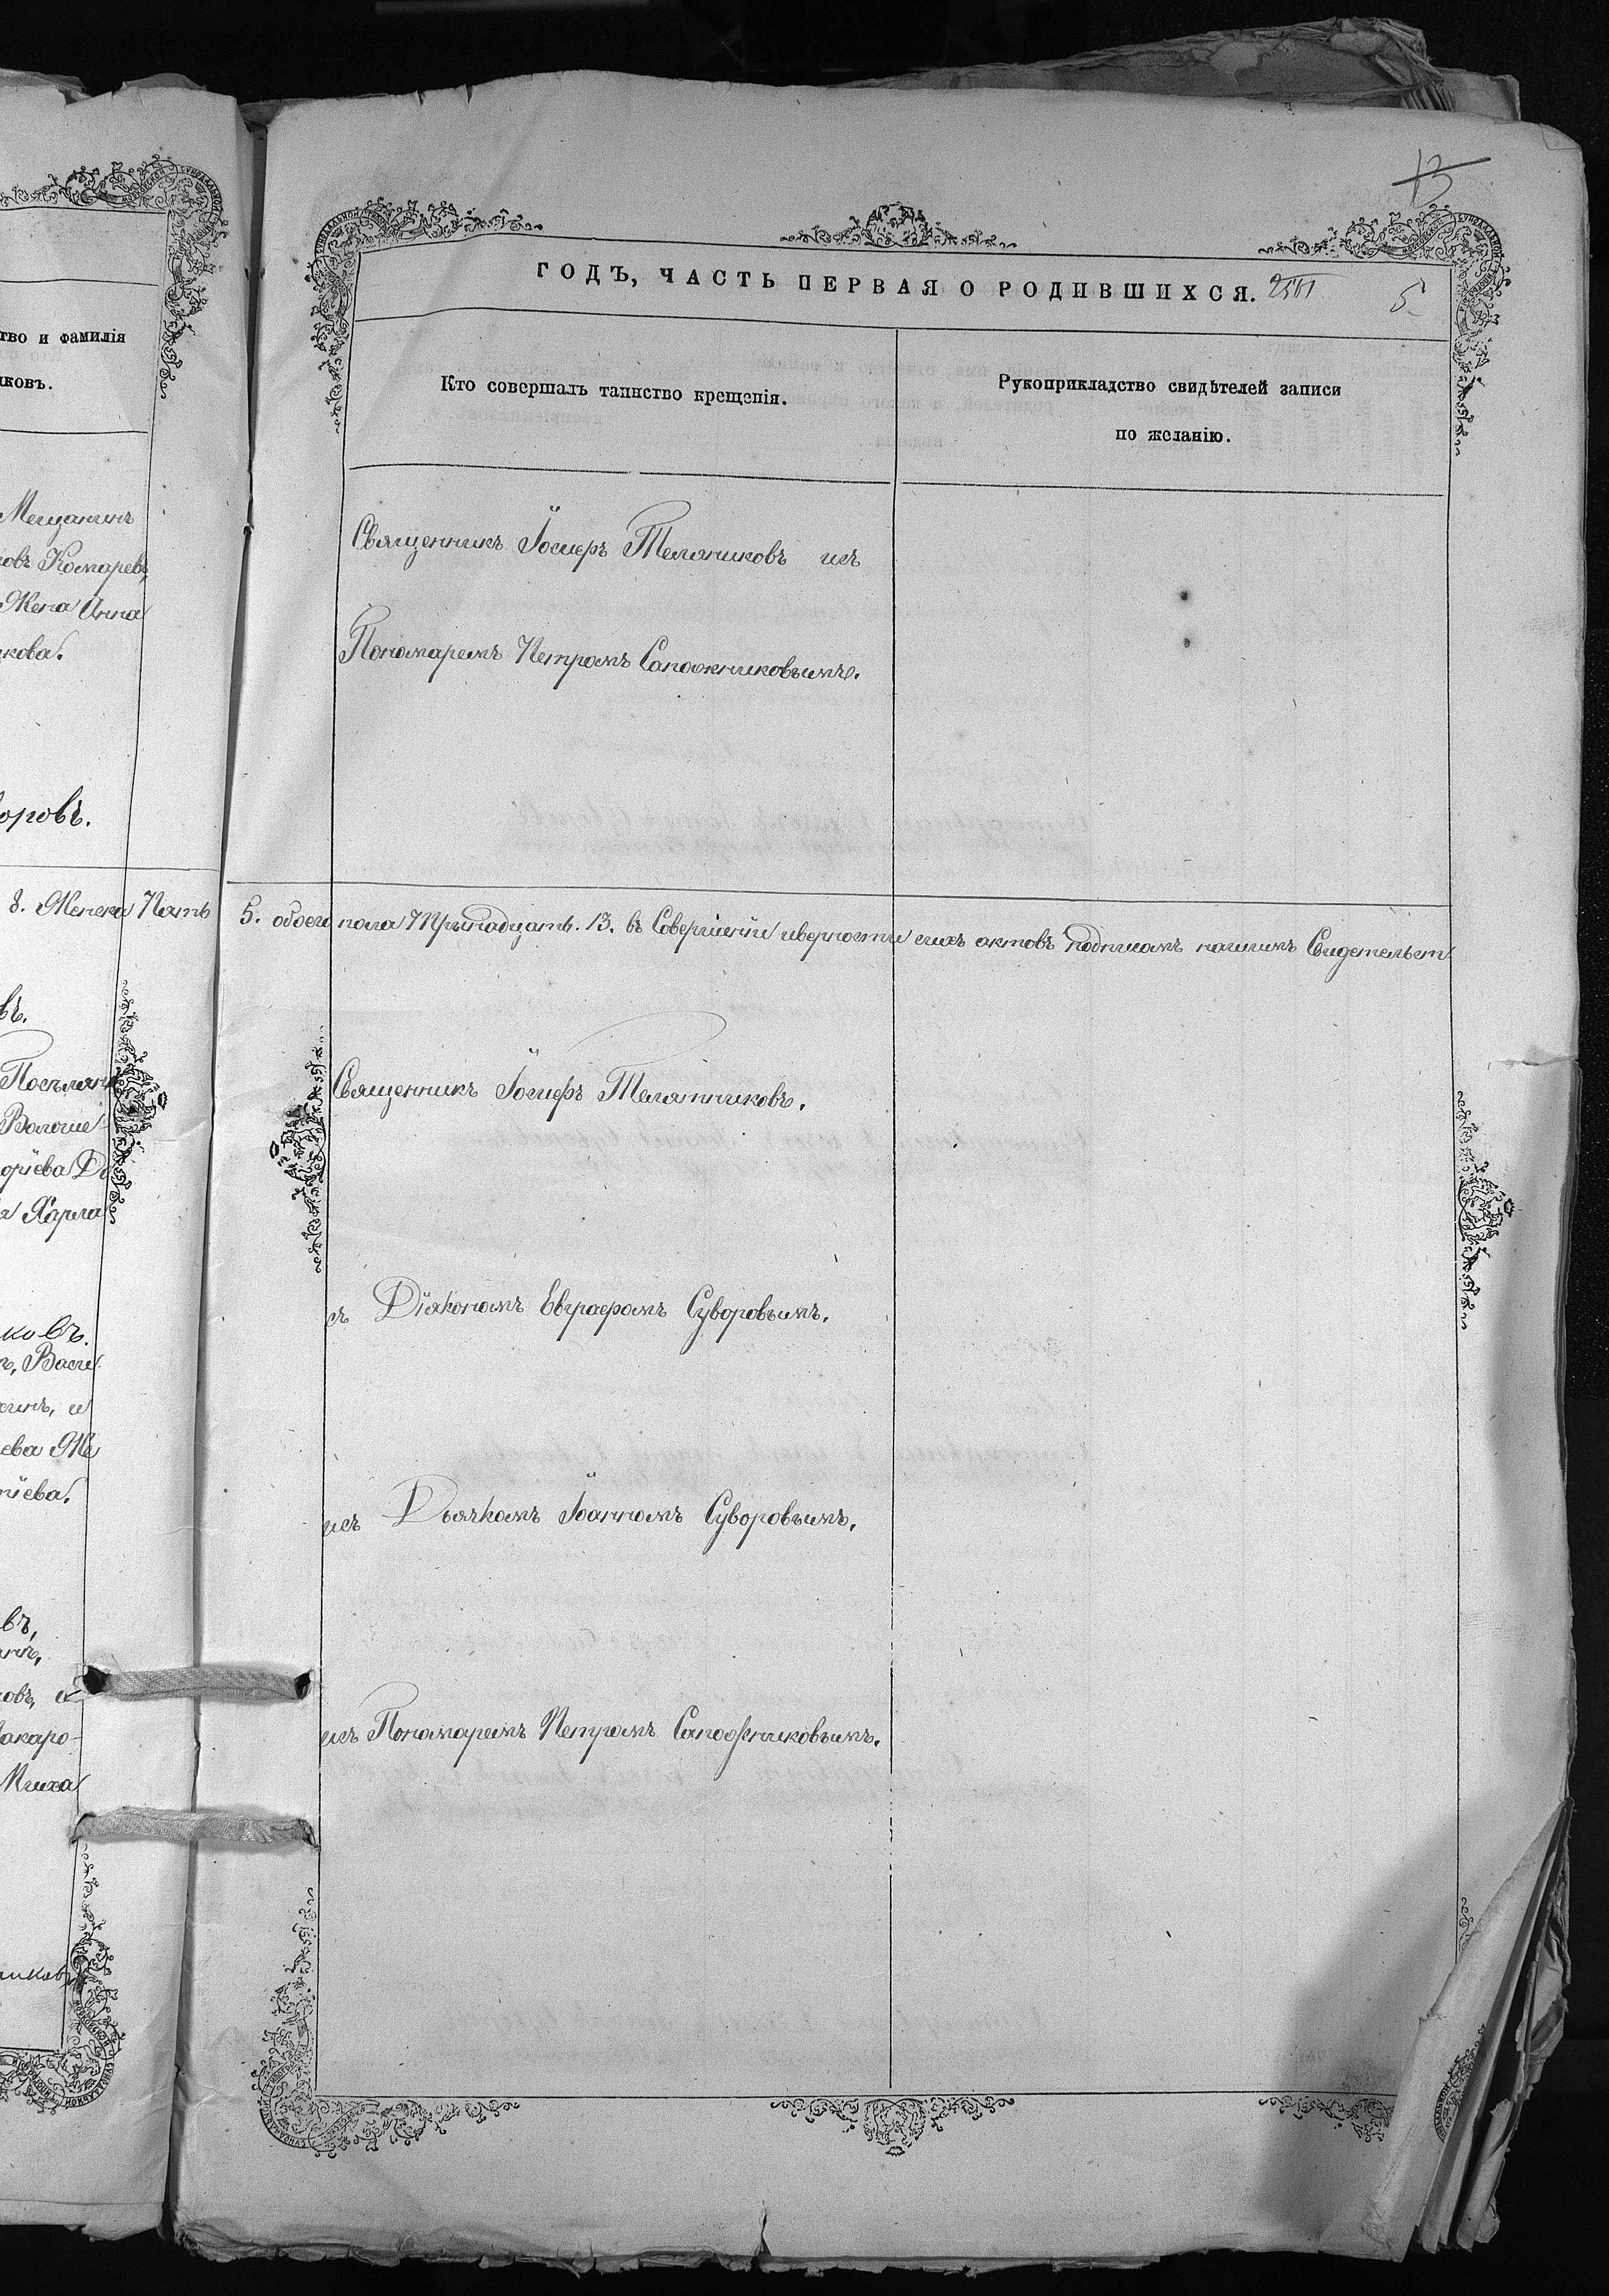 тво и фамилія
иковъ.
Мещанинъ
овъ Комаревъ,
Жена Анна
икова.
воровъ.
8. Женска Пять
въ.
Волоше
оріева
ковъ.
ъ, Васи
ева Же
въ,
овъ, и
акаро-
Миха
13
ГОДЪ, ЧАСТЬ ПЕРВАЯ О РОДИВШИХСЯ.
5.
Кто совершалъ таинство крещенія.
Рукоприкладство свидѣтелей записи
по желанію.
Священникъ Іосифъ Телятниковъ исъ
Пономаремъ Петромъ Сапожниковымъ.
5. обоего пола Тринадцать. 13. въ Совершеніи иверности сихъ актовъ подписомъ нашимъ Свидетельст
Священникъ Іосифъ Телятниковъ.
съ Діякономъ Евграфомъ Суворовымъ.
исъ Дьячкомъ Іоанномъ Суворовымъ.
исъ Пономаремъ Петромъ Сапожниковымъ.